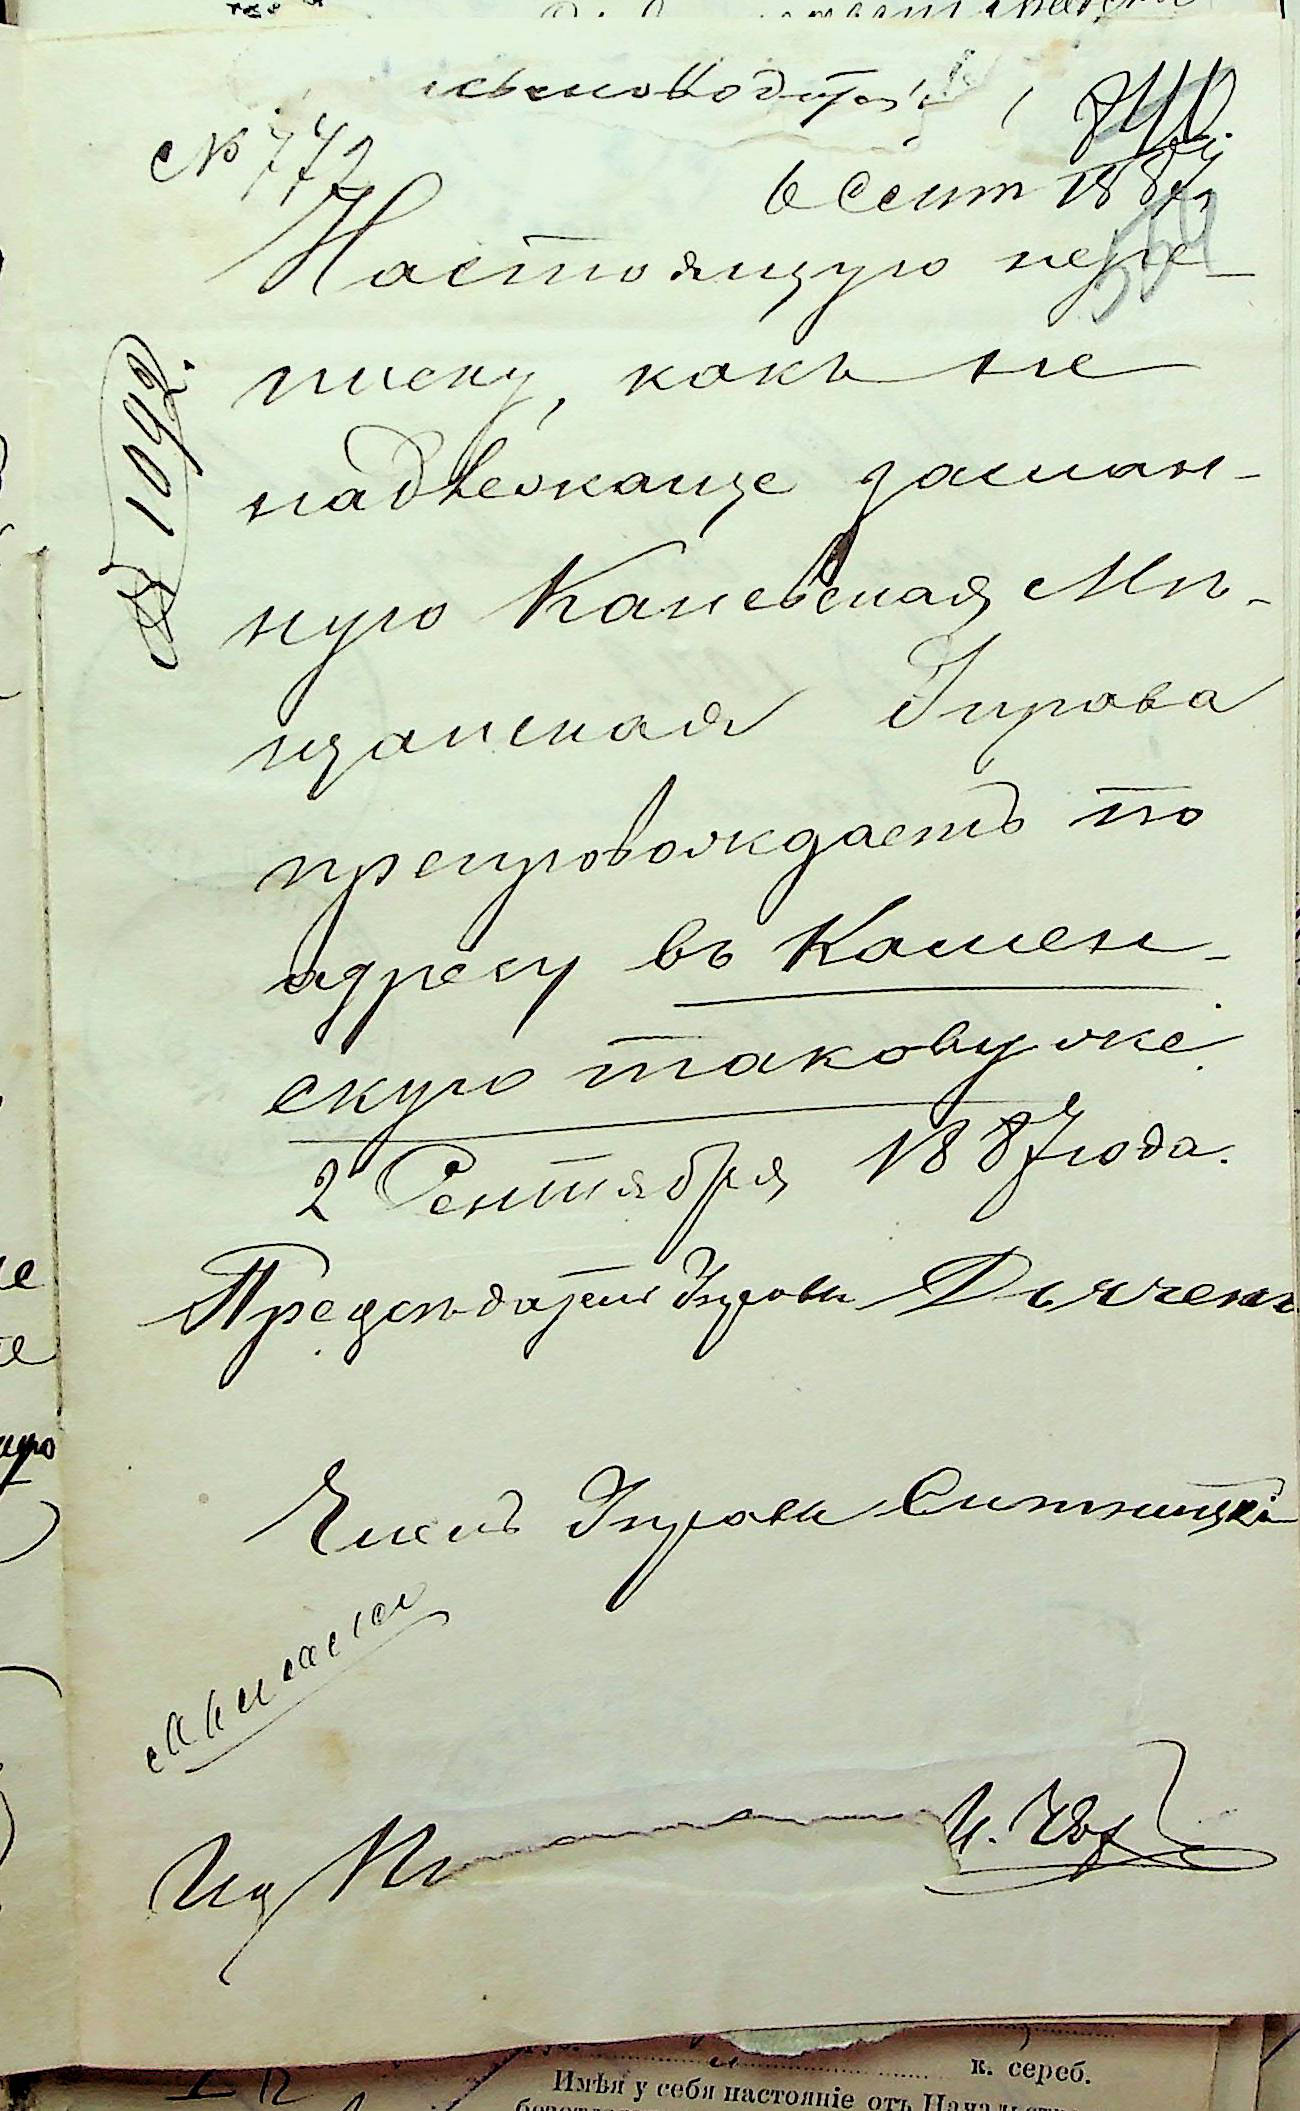 № 772
6 Сент 1887
Настоящую пере-
писку, какъ не
надлежаще заслан-
ную Каневская Мѣ-
щанская Управа
препровождаетъ по
адресу въ Камен-
скую таковую же.
2 Сентября 1887 года.
Предсѣдатель Управы Дьячен
Членъ Управы Ситницкі
№ 1092.
к. сереб.
Имѣя у себя настояніе отъ